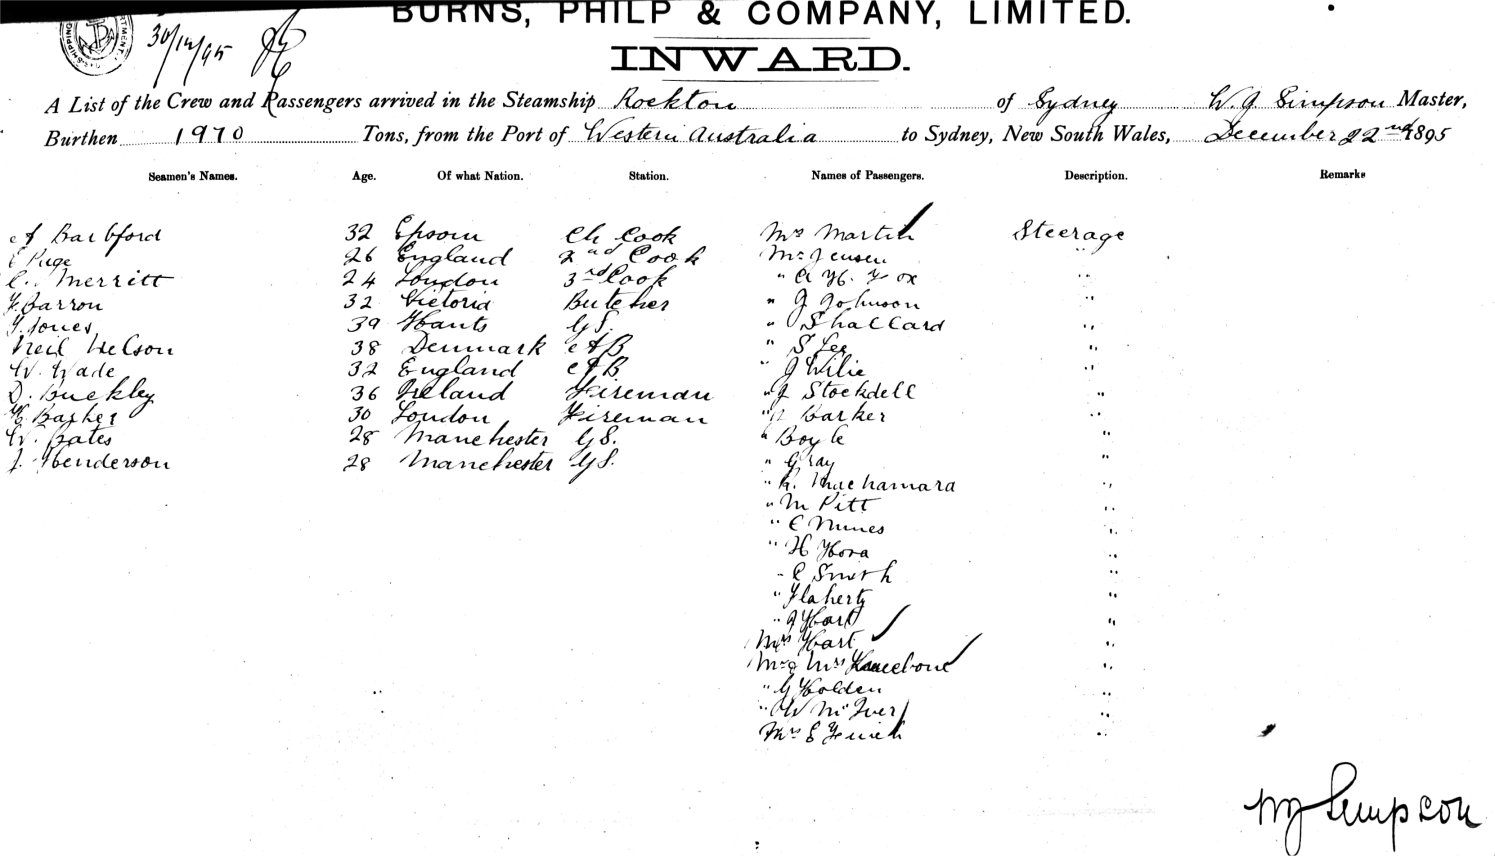 BURNS, PHILP & COMPANY, LIMITED.
30/12/95
INWARD.
A List of the Crew and Passengers arrived in the Steamship Rockton of Sydney W. G. Simpson Master,
Burthen 1970 Tons, from the Port of Western Australia to Sydney, New South Wales, December 22nd 1895
Seamen's Names. Age. Of what Nation. Station. Names of Passengers. Description. Remarks
A Barbford 32 Epsom Ch Cook Mrs Martin Steerage
Page 26 England 2nd Cook Mr Jensen "
C. Merritt 24 London 3rd Cook " A H. Fox "
F. Barron 32 Victoria Butcher " J Johnson "
T. Jones 39 Hants G.S. " Shallard "
Neil Nelson 38 Denmark AB " S Lee "
W. Wade 32 England AB " J Wilie "
D. Buckley 36 Ireland Fireman " J Stockdell "
H Barker 30 London Fireman " J Barker "
W. Bates 28 Manchester G.S. " Boyle "
J. Henderson 28 Manchester G.S. " Gray "
" Machamara "
" M Pitt "
" E Nunes "
" H Hora "
" C Smith "
" Flaherty "
" J Hart "
Mrs Hart "
Mr & Mrs "
" G Holden "
" W McIver "
Mrs E "
W G Simpson